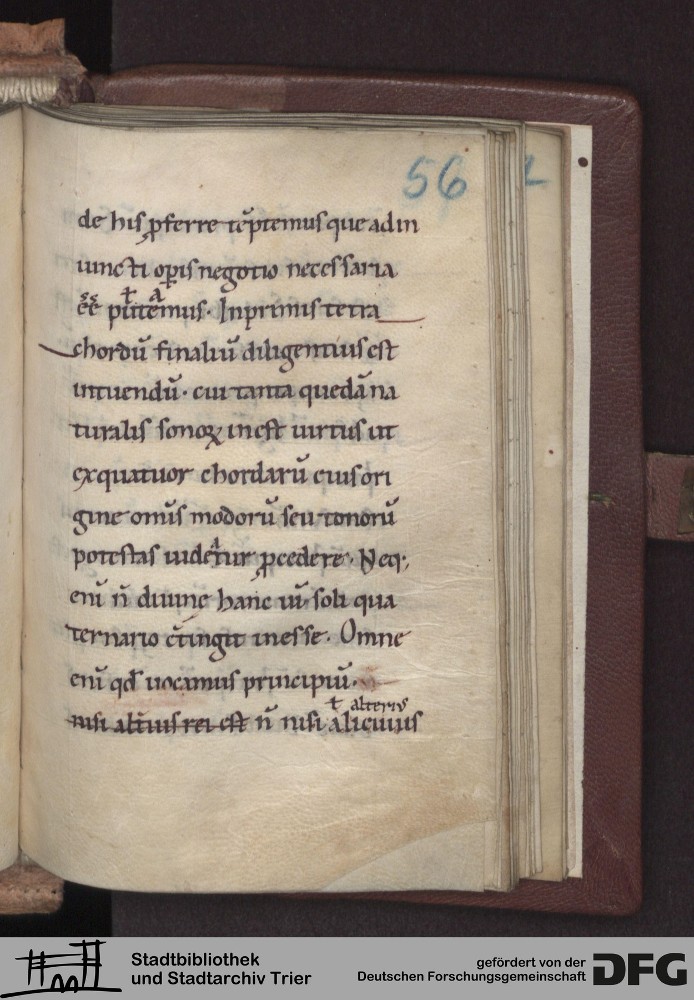 56
de his ꝓferre tẽptemus que ad in
iuncti oꝑis negotio necessaria
ẽẽ putemus. Inprimis tetra
chordũ finaliũ diligentius est
intuendũ. cui tanta quedã na
turalis sonoꝝ inest uirtus ut
ex quatuor chordarũ eius ori
gine om̃s modorũ seu tonorũ
potestas uidet̃ur ꝓcedere. Neq;
eni ñ diuine hanc uĩ soli qua
ternario c̃tingit inesse. Omne
enĩ qd̃ uocamus principiũ.
ł alteriꝰ
nisi alt̃ius rei est ñ nisi alicuius
Stadtbibliothek
und Stadtarchiv Trier
gefördert von der
Deutschen Forschungsgemeinschaft
DFG